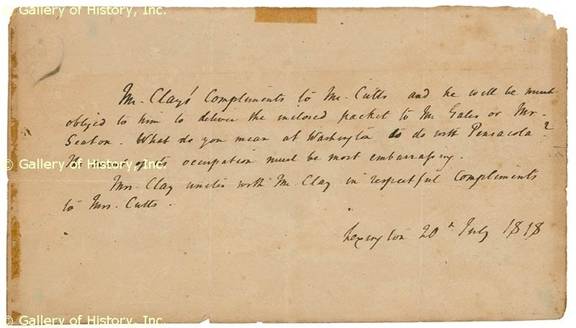 © Gallery of History, Inc.
Mr. Clay's Compliments to Mr. Cutts and he will be much
obliged to him to deliver the inclosed packet to Mr. Gales or Mr.
Seaton. What do you mean at Washington to do with Pensacola?
occupation must be most embarrassing.
Mrs. Clay unites with Mr. Clay in respectful Compliments
to Mrs. Cutts.
Lexington 20th July 1818
© Gallery of History, Inc.
© Gallery of History, Inc.